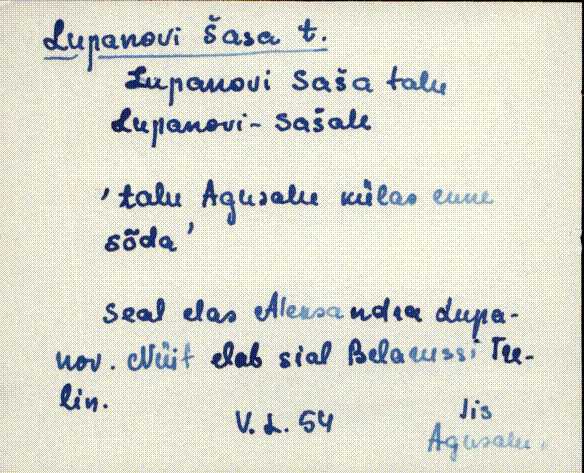 Lupanovi Šasa t.
Lupanovi Saša talu
Lupanovi-Sašale
'talu Agusalu külas enne
sõda'
Seal elas Aleksandra Lupa-
nov. Nüit elab sial Belarussi Tee-
lin.
V. L. 54 Iis
Agusalu